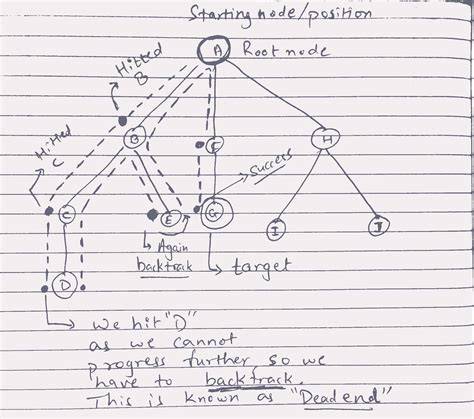 Starting node/position
A Root node
Hitted
B
Hitted
C
B
F
H
Success
C
E
G
I
J
Again
backtrak
target
D
We hit "D"
as we cannot
progress further so we
have to backtrack.
This is known as "Dead end"